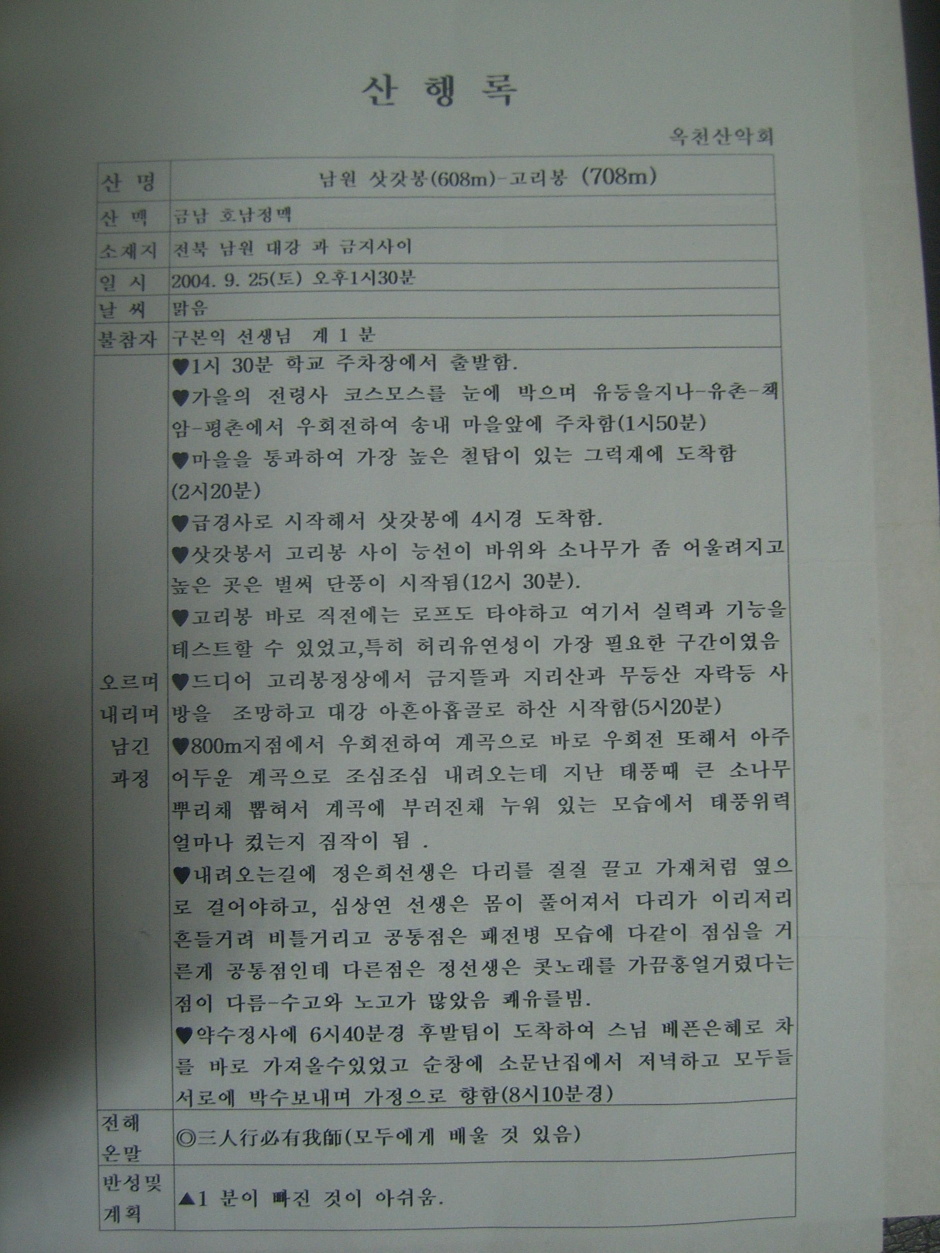 산 행 록
옥천산악회
산 명 남원 삿갓봉(608m)-고리봉 (708m)
산 맥 금남 호남정맥
소재지 전북 남원 대강 과 금지사이
일 시 2004. 9. 25(토) 오후1시30분
날 씨 맑음
불참자 구본익 선생님 계 1 분
♥1시 30분 학교 주차장에서 출발함.
♥가을의 전령사 코스모스를 눈에 박으며 유등을지나-유촌-책
암-평촌에서 우회전하여 송내 마을앞에 주차함(1시50분)
♥마을을 통과하여 가장 높은 철탑이 있는 그럭재에 도착함
(2시20분)
♥급경사로 시작해서 삿갓봉에 4시경 도착함.
♥삿갓봉서 고리봉 사이 능선이 바위와 소나무가 좀 어울려지고
높은 곳은 벌써 단풍이 시작됨(12시 30분).
♥고리봉 바로 직전에는 로프도 타야하고 여기서 실력과 기능을
테스트할 수 있었고,특히 허리유연성이 가장 필요한 구간이였음
오르며 ♥드디어 고리봉정상에서 금지뜰과 지리산과 무등산 자락등 사
내리며 방을 조망하고 대강 아흔아홉골로 하산 시작함(5시20분)
남긴 ♥800m지점에서 우회전하여 계곡으로 바로 우회전 또해서 아주
과정 어두운 계곡으로 조심조심 내려오는데 지난 태풍때 큰 소나무
뿌리채 뽑혀서 계곡에 부러진채 누워 있는 모습에서 태풍위력
얼마나 컸는지 짐작이 됨 .
♥내려오는길에 정은희선생은 다리를 질질 끌고 가재처럼 옆으
로 걸어야하고, 심상연 선생은 몸이 풀어져서 다리가 이리저리
흔들거려 비틀거리고 공통점은 패전병 모습에 다같이 점심을 거
른게 공통점인데 다른점은 정선생은 콧노래를 가끔흥얼거렸다는
점이 다름-수고와 노고가 많았음 쾌유를빔.
♥약수정사에 6시40분경 후발팀이 도착하여 스님 베픈은혜로 차
를 바로 가져올수있었고 순창에 소문난집에서 저녁하고 모두들
서로에 박수보내며 가정으로 향함(8시10분경)
전해
온말 ◎三人行必有我師(모두에게 배울 것 있음)
반성및
계획 ▲1 분이 빠진 것이 아쉬움.